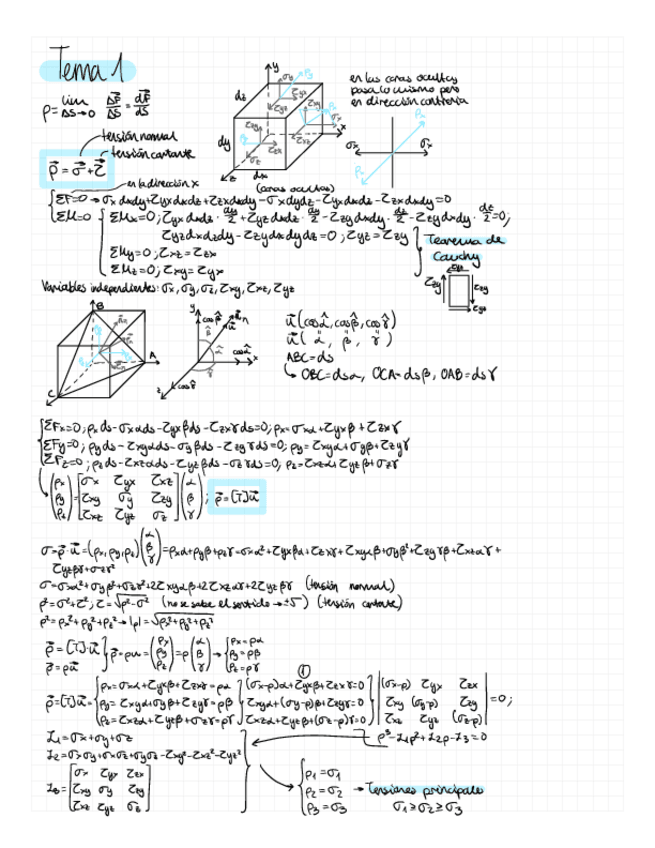 Tema 1
p = lim ΔS→0 ΔF⃗/ΔS = dF⃗/dS
tensión normal
tensión cortante
p⃗ = σ⃗ + τ⃗
en las caras ocultas
pasa lo mismo pero
en dirección contraria
(caras ocultas)
en la dirección x
ΣF=0 → σx dxdy + τyx dxdz + τzx dxdy - σx dydz - τyx dxdz - τzx dxdy = 0
ΣM=0
ΣMx=0; τyx dxdz · dy/2 + τyz dxdz · dy/2 - τzy dxdy · dz/2 - τzy dxdy · dz/2 = 0;
τyz dxdzdy - τzy dxdydz = 0; τyz = τzy
ΣMy=0; τxz = τzx
ΣMz=0; τxy = τyx
Teorema de
Cauchy
Variables independientes: σx, σy, σz, τxy, τxz, τyz
u⃗ (cosα̂, cosβ̂, cosγ̂)
u⃗ ( α, β, γ )
ABC = ds
↳ OBC = dsα, OCA = dsβ, OAB = dsγ
ΣFx=0; px ds - σxαds - τyxβds - τzxγds = 0; px = σxα + τyxβ + τzxγ
ΣFy=0; py ds - τxyαds - σyβds - τzyγds = 0; py = τxyα + σyβ + τzyγ
ΣFz=0; pz ds - τxzαds - τyzβds - σzγds = 0; pz = τxzα τyzβ + σzγ
(px py pz) = [σx τyx τxz; τxy σy τzy; τxz τyz σz] (α β γ); p⃗ = [T]u⃗
σ = p⃗·u⃗ = (px, py, pz) (α β γ) = pxα + pyβ + pzγ = σxα² + τyxβα + τzxγα + τxyαβ + σyβ² + τzyγβ + τxzαγ +
τyzβγ + σzγ²
σ = σxα² + σyβ² + σzγ² + 2τxyαβ + 2τxzαγ + 2τyzβγ (tensión normal)
p² = σ² + τ²; τ = √p² - σ² (no se sabe el sentido → ±5) (tensión cortante)
p² = px² + py² + pz² → |p| = √px² + py² + pz²
p⃗ = [T]·u⃗
p⃗ = pu⃗
p⃗ = pu = (px py pz) = p (α β γ) → px = pα
py = pβ
pz = pγ
①
p⃗ = [T]u⃗ = px = σxα + τyxβ + τzxγ = pα (σx-p)α + τyxβ + τzxγ = 0 | (σx-p) τyx τzx |
py = τxyα + σyβ + τzyγ = pβ τxyα + (σy-p)β + τzyγ = 0 | τxy (σy-p) τzy | = 0;
pz = τxzα + τyzβ + σzγ = pγ τxzα + τyzβ + (σz-p)γ = 0 | τxz τyz (σz-p) |
p³ - I1p² + I2p - I3 = 0
I1 = σx + σy + σz
I2 = σxσy + σxσz + σyσz - τxy² - τxz² - τyz²
I3 = [σx τyx τzx; τxy σy τzy; τxz τyz σz]
p1 = σ1
p2 = σ2 → Tensiones principales
p3 = σ3 σ1 ≥ σ2 ≥ σ3